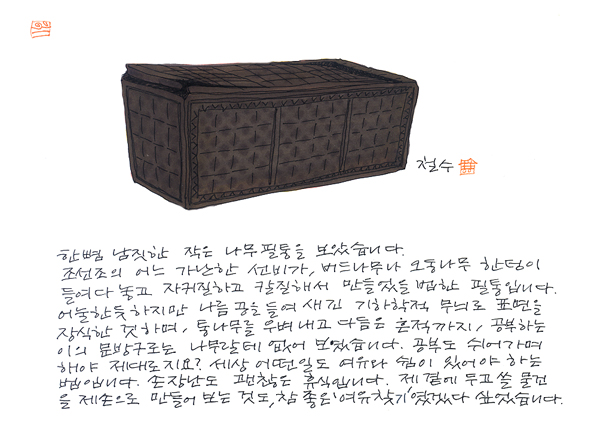 철수
한뼘 남짓한 작은 나무필통을 보았습니다.
조선조의 어느 가난한 선비가, 버드나무나 오동나무 한덩이
들여다 놓고 자귀질하고 칼질해서 만들었을 법한 필통입니다.
어눌한듯하지만 나름 공을 들여 새긴 기하학적 무늬로 표면을
장식한 것하며, 통나무를 우벼내고 다듬은 흔적까지, 공부하는
이의 문방구로는 나무랄데 없어 보였습니다. 공부도 쉬어가며
해야 제대로지요? 세상 어떤일도 여유와 쉼이 있어야 하는
법입니다. 손장난도 괜찮은 휴식입니다. 제 곁에 두고 쓸 물건
을 제손으로 만들어 보는 것도, 참 좋은 '여유찾기'였겠다 싶었습니다.